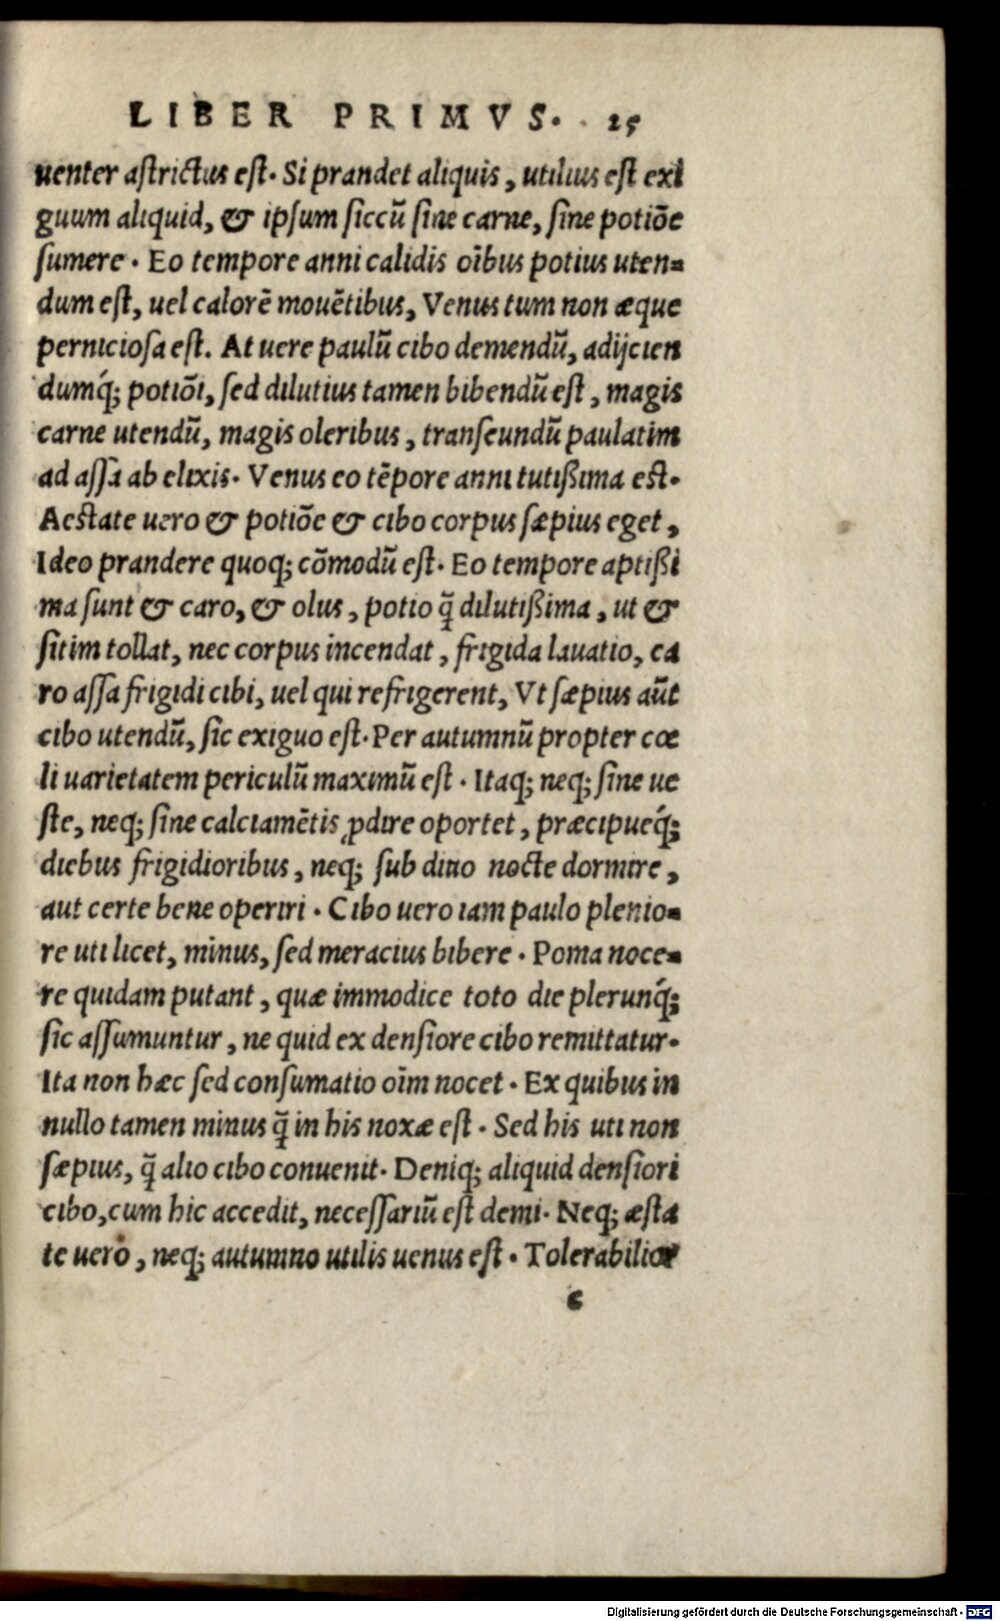 LIBER PRIMVS. 25
uenter astrictus est. Si prandet aliquis, utilius est exi
guum aliquid, & ipsum siccū sine carne, sine potiōe
sumere. Eo tempore anni calidis oībus potius uten-
dum est, uel calorē mouētibus, Venus tum non æque
perniciosa est. At uere paulū cibo demendū, adijcien
dumq́; potiōi, sed dilutius tamen bibendū est, magis
carne utendū, magis oleribus, transeundū paulatim
ad assa ab elixis. Venus eo tēpore anni tutißima est.
Aestate uero & potiōe & cibo corpus sæpius eget,
Ideo prandere quoq; cōmodū est. Eo tempore aptißi
ma sunt & caro, & olus, potio q̄ dilutißima, ut &
sitim tollat, nec corpus incendat, frigida lauatio, ca
ro assa frigidi cibi, uel qui refrigerent, Vt sæpius aūt
cibo utendū, sic exiguo est. Per autumnū propter cœ
li uarietatem periculū maximū est. Itaq; neq; sine ue
ste, neq; sine calciamētis ꝓdire oportet, præcipueq́;
diebus frigidioribus, neq; sub diuo nocte dormire,
aut certe bene operiri. Cibo uero iam paulo plenio-
re uti licet, minus, sed meracius bibere. Poma noce-
re quidam putant, quæ immodice toto die plerunq́;
sic assumuntur, ne quid ex densiore cibo remittatur.
Ita non hæc sed consumatio oīm nocet. Ex quibus in
nullo tamen minus q̄ in his noxæ est. Sed his uti non
sæpius, q̄ alio cibo conuenit. Deniq; aliquid densiori
cibo, cum hic accedit, necessariū est demi. Neq; æsta
te uero, neq; autumno utilis uenus est. Tolerabilior
c
Digitalisierung gefördert durch die Deutsche Forschungsgemeinschaft - DFG